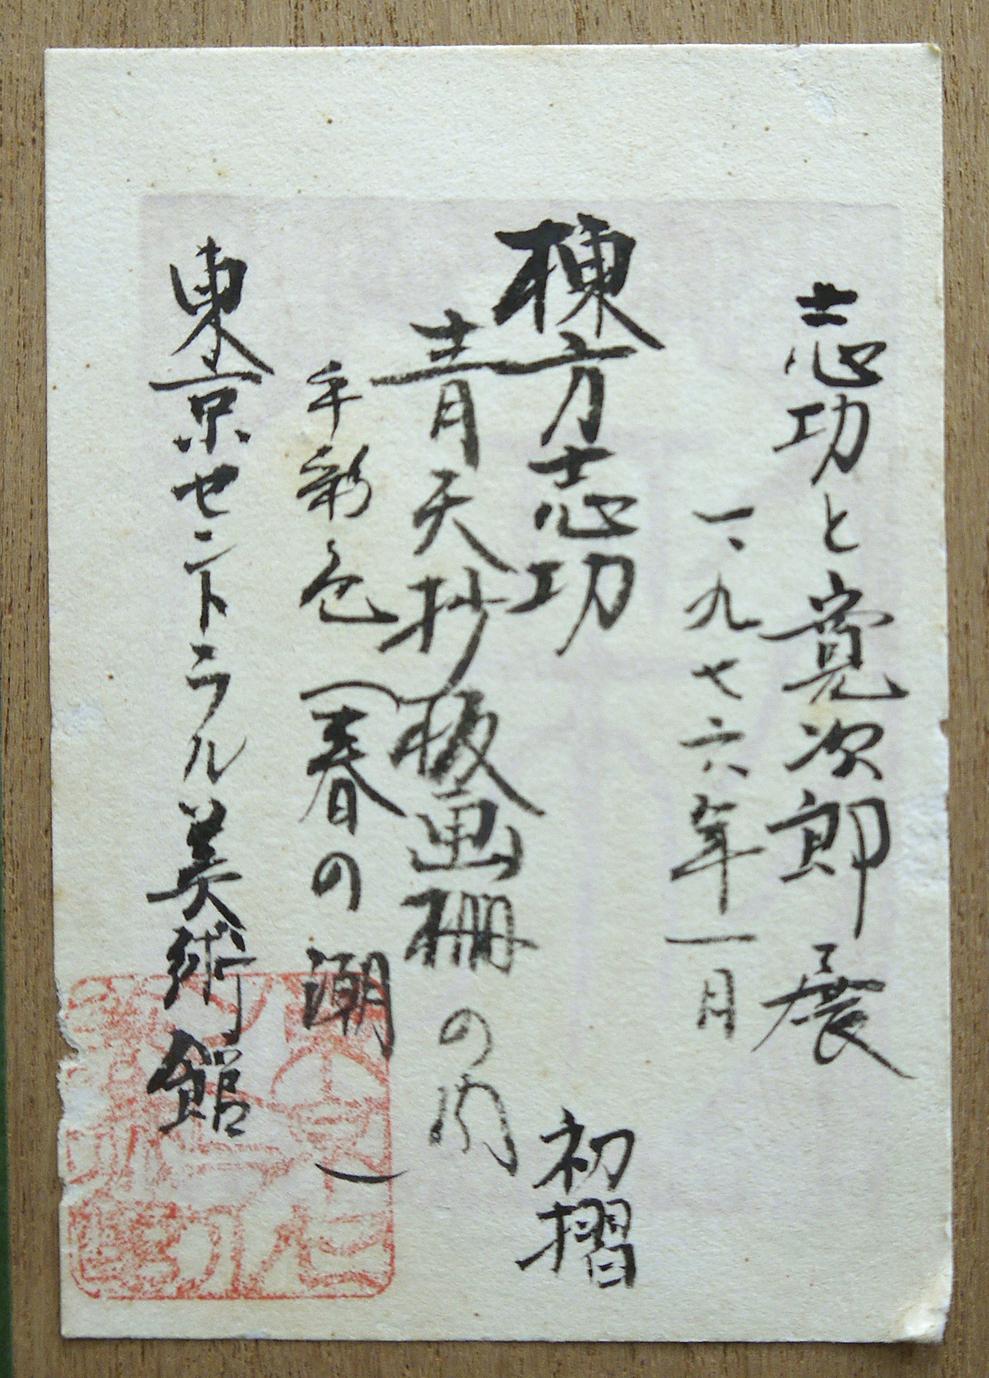 志功と寛次郎展
一、九七六年一月
棟方志功 初摺
青天抄板画柵の内
手彩色(春の潮)
東京セントラル美術館